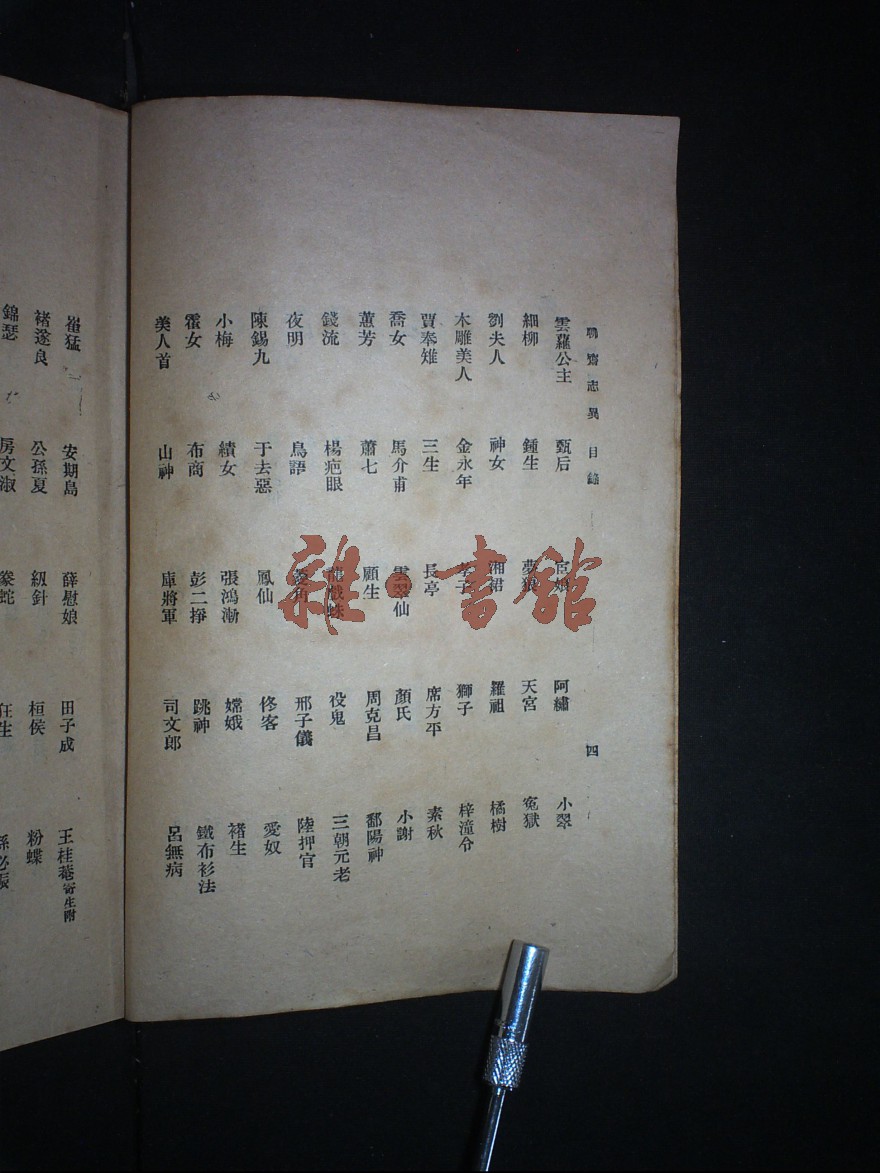 聊齋志異 目錄 四
雲蘿公主 甄后 宦娘 阿繡 小翠
細柳 鍾生 夢狼 天宮 冤獄
劉夫人 神女 湘 羅祖 橘樹
木雕美人 金永年 孝子 獅子 梓潼令
賈奉雉 三生 長亭 席方平 素秋
喬女 馬介甫 雲翠仙 顏氏 小謝
蕙芳 蕭七 顧生 周克昌 鄱陽神
錢流 楊疤眼 龍戲蛛 役鬼 三朝元老
夜明 鳥語 菱角 邢子儀 陸押官
陳錫九 于去惡 鳳仙 佟客 愛奴
小梅 績女 張鴻漸 嫦娥 褚生
霍女 布商 彭二掙 跳神 鐵布衫法
美人首 山神 庫將軍 司文郎 呂無病
崔猛 安期島 薛慰娘 田子成 王桂菴寄生附
褚遂良 公孫夏 紉針 桓侯 粉蝶
錦瑟 房文淑
雜·書館